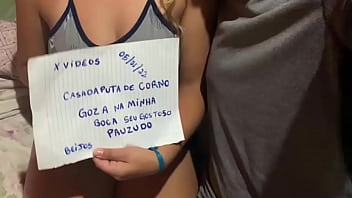 XVIDEOS
05/01/22
CASADAPUTA DE CORNO
GOZA NA MINHA
BOCA SEU GOSTOSO
PAUZUDO
BEIJOS